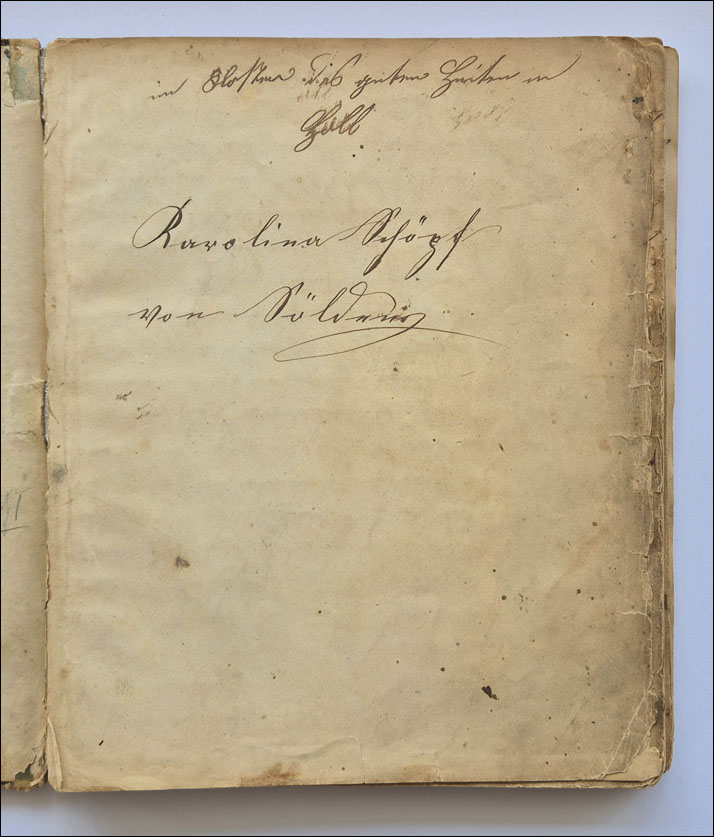 im Kloster des guten Hirten in
Hall
Karolina Schöpf
von Sölden